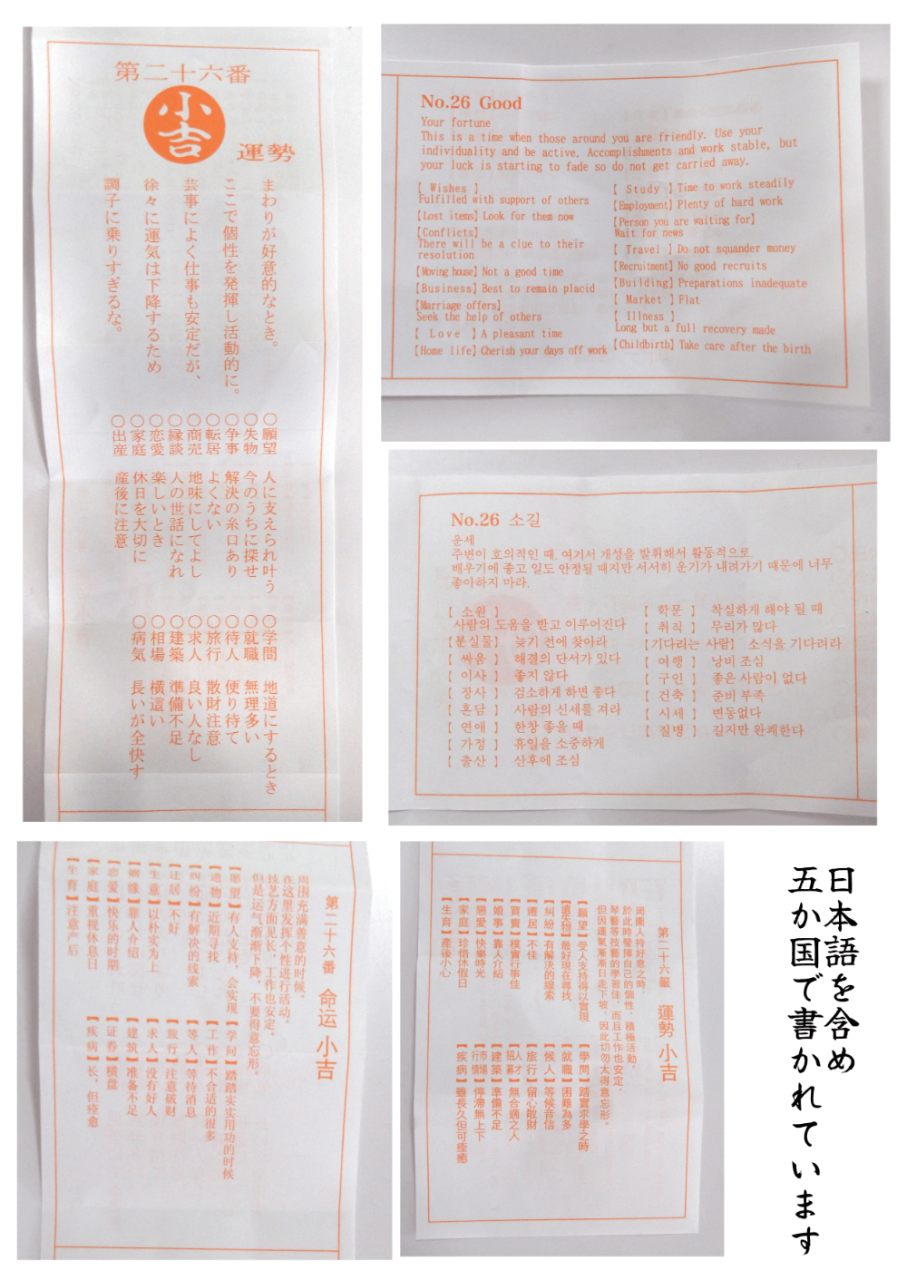 第二十六番
小吉
運勢
まわりが好意的なとき。
ここで個性を発揮し活動的に。
芸事によく仕事も安定だが、
徐々に運気は下降するため
調子に乗りすぎるな。
○願望 人に支えられ叶う
○失物 今のうちに探せ
○争事 解決の糸口あり
○転居 よくない
○商売 地味にしてよし
○縁談 人の世話になれ
○恋愛 楽しいとき
○家庭 休日を大切に
○出産 産後に注意
○学問 地道にするとき
○就職 無理多い
○待人 便り待て
○旅行 散財注意
○求人 良い人なし
○建築 準備不足
○相場 横這い
○病気 長いが全快す
No.26 Good
Your fortune
This is a time when those around you are friendly. Use your
individuality and be active. Accomplishments and work stable, but
your luck is starting to fade so do not get carried away.
【 Wishes 】
Fulfilled with support of others
【Lost items】Look for them now
【Conflicts】
There will be a clue to their
resolution
【Moving house】Not a good time
【Business】Best to remain placid
【Marriage offers】
Seek the help of others
【 Love 】A pleasant time
【Home life】Cherish your days off work
【 Study 】Time to work steadily
【Employment】Plenty of hard work
【Person you are waiting for】
Wait for news
【 Travel 】Do not squander money
【Recruitment】No good recruits
【Building】Preparations inadequate
【 Market 】Flat
【 Illness 】
Long but a full recovery made
【Childbirth】Take care after the birth
No.26 소길
운세
주변이 호의적인 때. 여기서 개성을 발휘해서 활동적으로
배우기에 좋고 일도 안정될 때지만 서서히 운기가 내려가기 때문에 너무
좋아하지 마라.
【 소원 】
사람의 도움을 받고 이루어진다
【분실물】 늦기 전에 찾아라
【 싸움 】 해결의 단서가 있다
【 이사 】 좋지 않다
【 장사 】 검소하게 하면 좋다
【 혼담 】 사람의 신세를 져라
【 연애 】 한창 좋을 때
【 가정 】 휴일을 소중하게
【 출산 】 산후에 조심
【 학문 】 착실하게 해야 될 때
【 취직 】 무리가 많다
【기다리는 사람】 소식을 기다려라
【 여행 】 낭비 조심
【 구인 】 좋은 사람이 없다
【 건축 】 준비 부족
【 시세 】 변동없다
【 질병 】 길지만 완쾌한다
第二十六番 命运 小吉
周围充满善意的时候。
在这里发挥个性进行活动。
技艺方面见长，工作也安定。
但是运气渐渐下降，不要得意忘形。
【愿望】有人支持，会实现
【遗物】近期寻找
【纠纷】有解决的线索
【迁居】不好
【生意】以朴实为上
【姻缘】靠人介绍
【恋爱】快乐的时期
【家庭】重视休息日
【生育】注意产后
【学问】踏踏实实用功的时候
【工作】不合适的很多
【等人】等待消息
【旅行】注意破财
【求人】没有好人
【建筑】准备不足
【证券】横盘
【疾病】长，但痊愈
第二十六籤 運勢 小吉
周圍人待好意之時。
於此時發揮自己的個性，積極活動。
琴藝等技藝的學習佳，而且工作也安定。
但因運氣漸漸日走下坡，因此切勿太得意忘形。
【願望】受人支持得以實現
【遺失物】最好現在尋找
【糾紛】有解決的線索
【遷居】不佳
【買賣】樸實行事佳
【婚事】靠人介紹
【戀愛】快樂時光
【家庭】珍惜休假日
【生育】產後小心
【學問】踏實求學之時
【就職】困難為多
【候人】等候音信
【旅行】留心散財
【招人才募】無合適之人
【建築】準備不足
【市場行情】停滯無上下
【疾病】雖長久但可痊癒
日本語を含め
五か国で書かれています